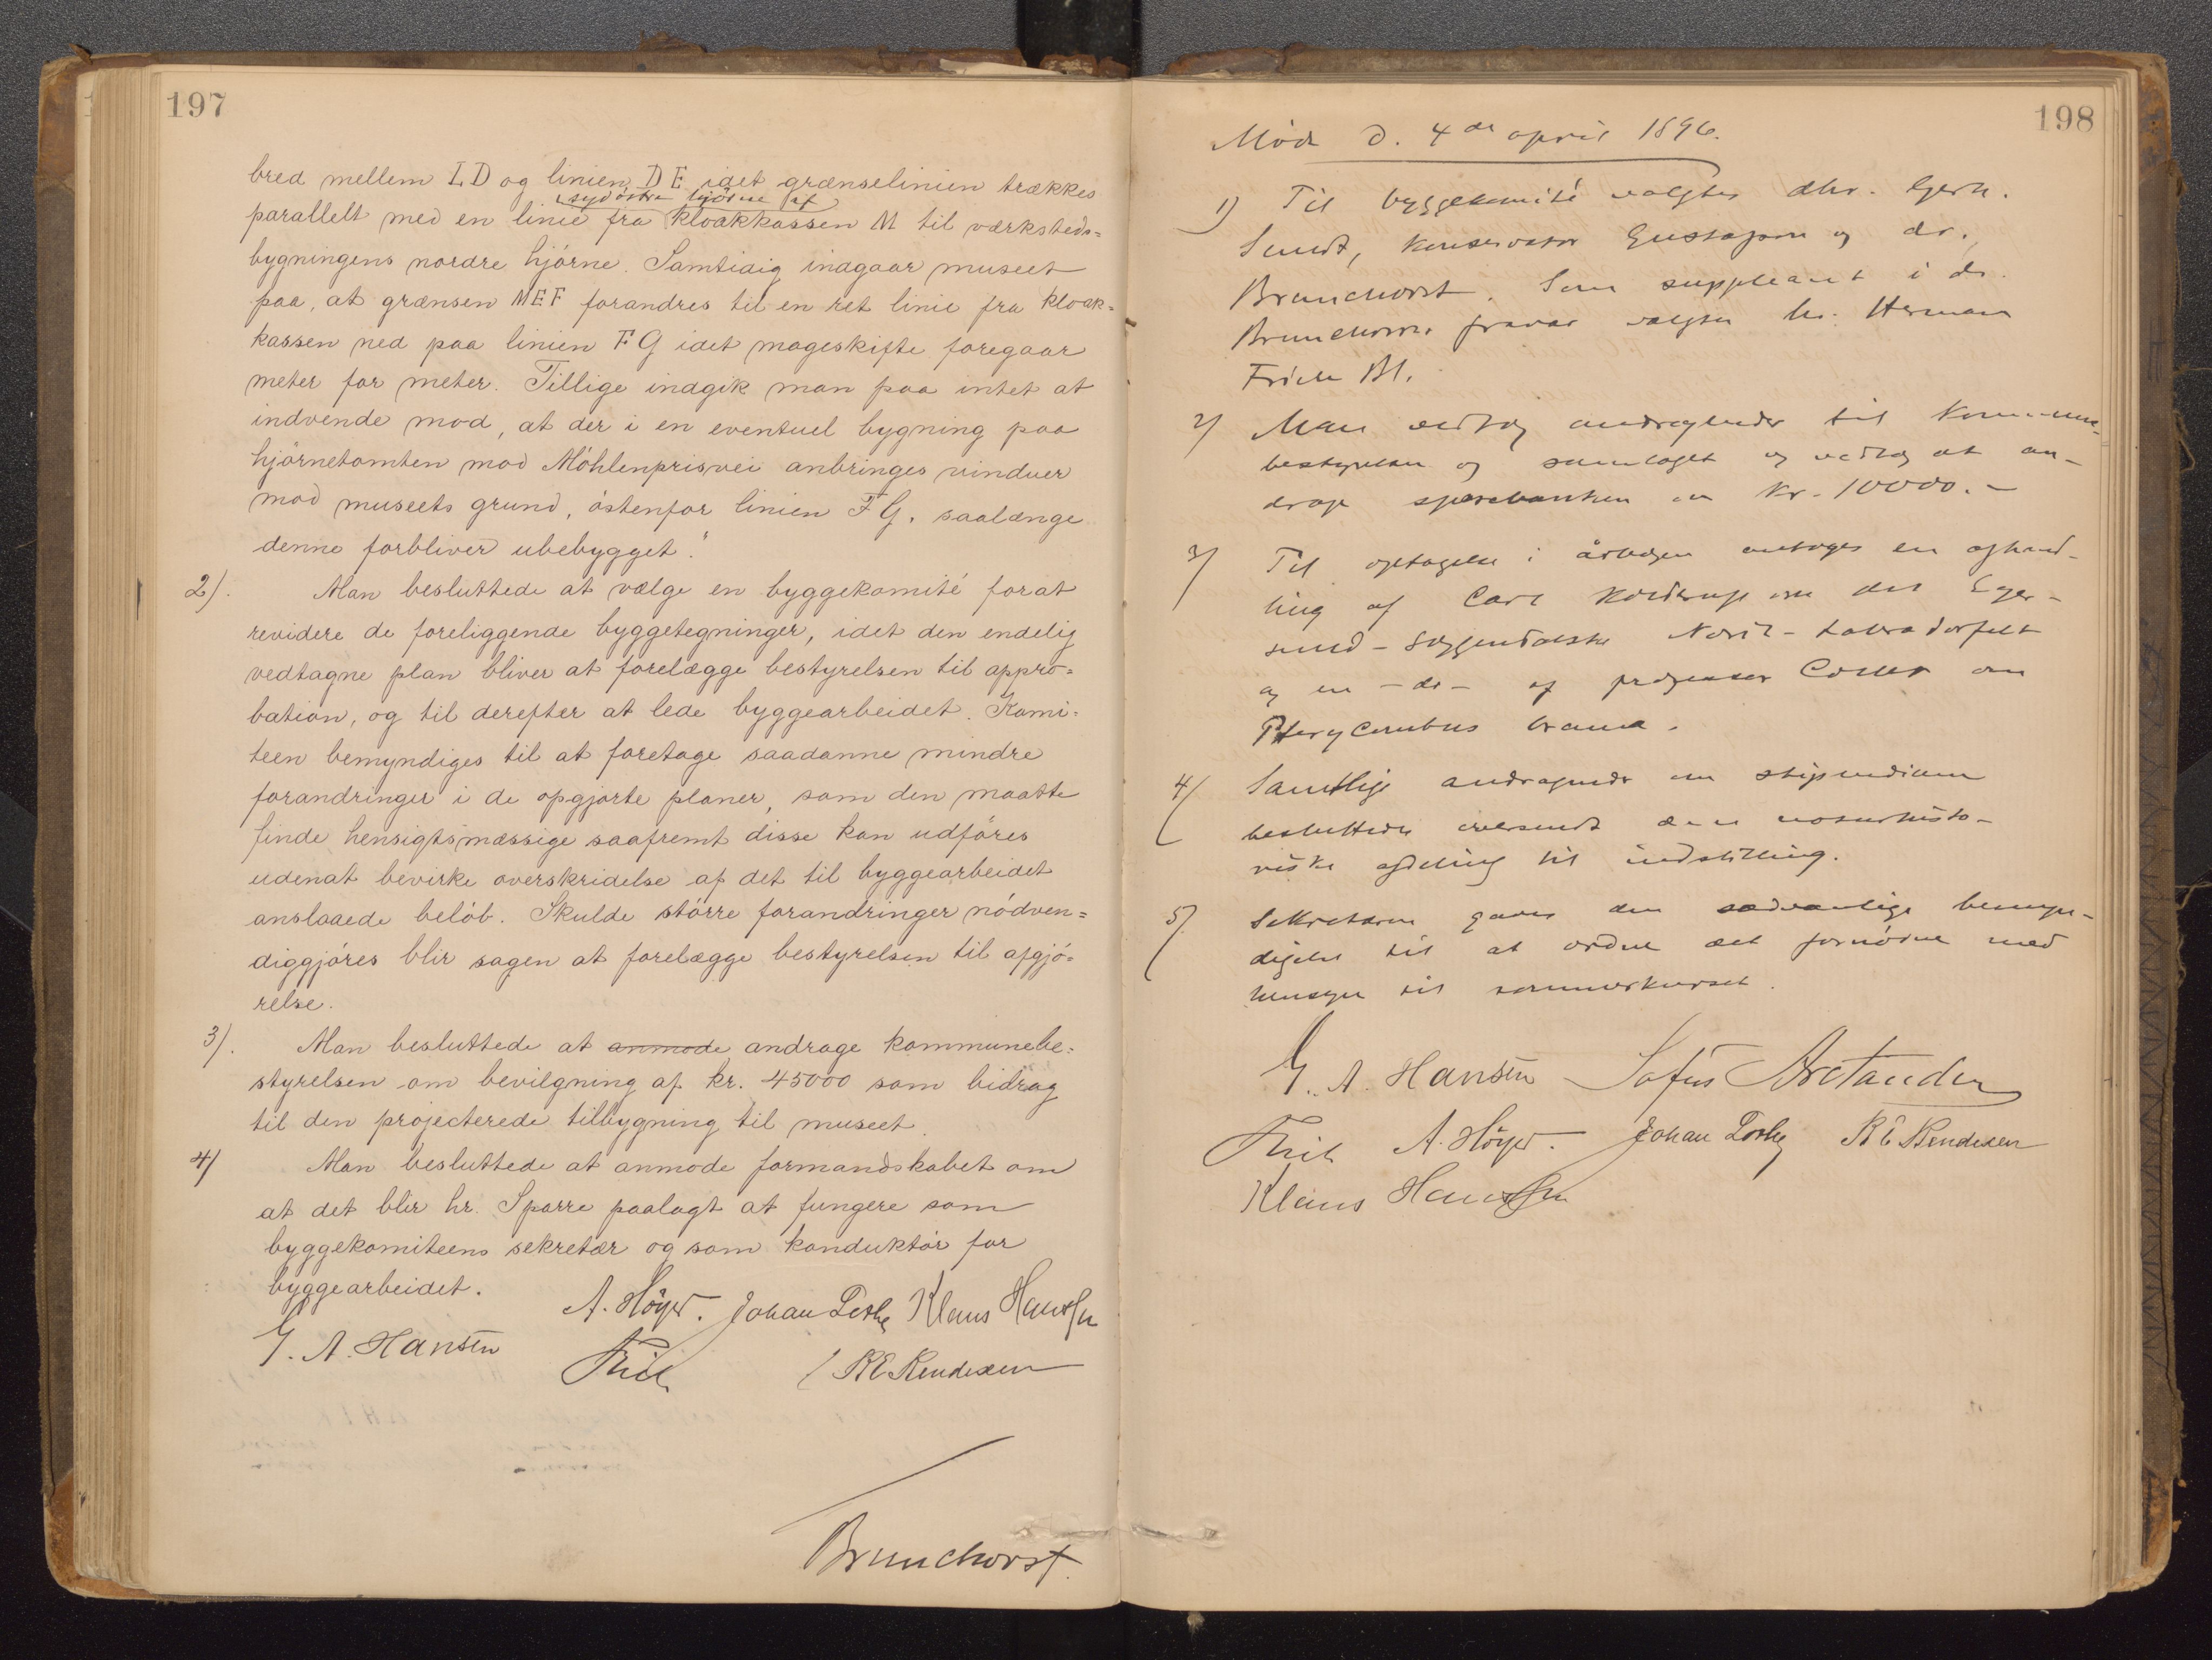 197
bred mellem LD og linien DE idet grænselinien trækkes
sydöstre hjörne af
parallelt med en linie fra kloakkassen M til værksteds=
bygningens nordre hjörne. Samtidig indgaar museet
paa, at grænsen MEF forandres til en ret linie fra kloak=
kassen ned paa linien FG idet mageskifte foregaar
meter for meter. Tillige indgik man paa intet at
indvende mod, at der i en eventuel bygning paa
hjörnetomten mod Möhlenprisvei anbringes vinduer
mod museets grund, östenfor linien FG, saalænge
denne forbliver ubebygget."
2). Man besluttede at vælge en byggekomité forat
revidere de foreliggende byggetegninger, idet den endelig
vedtagne plan bliver at forelægge bestyrelsen til appro=
bation, og til derefter at lede byggearbeidet. Komi=
teen bemyndiges til at foretage saadanne mindre
forandringer i de opgjorte planer, som den maatte
finde hensigtsmæssige saafremt disse kan udföres
udenat bevirke overskridelse af det til byggearbeidet
anslaaede belöb. Skulde större forandringer nödven=
diggjöres blir sagen at forelægge bestyrelsen til afgjö=
relse.
3). Man besluttede at anmode andrage kommunebe=
styrelsen om bevilgning af kr. 45000 som bidrag
til den projecterede tilbygning til museet.
4) Man besluttede at anmode formandskabet om
at det blir hr. Sparre paalagt at fungere som
byggekomiteens sekretær og som konduktör for
byggearbeidet.
A. Höyer. Johan Klaus Hanssen
G. A. Hansen
Brunchorst.
198
Möde d. 4de april 1896.
1) Til byggekomité valgtes dhr. Gerh.
Sundt, konservator Gustafson og dr.
Brunchorst. Som suppleant i dr.
Brunchorsts fravær valgtes hr. Herman
Friele Bl.
2) Man vedtog andragender til kommune-
bestyrelsen og samlaget og vedtog at an-
drage sparebanken om kr. 10000.-
3) Til optagelse i årbogen antoges en afhand-
ling af Carl Kolderup om det Eger-
sund-Soggendalske Norit-Labradorfelt
og en -do- af professor Collett om
Pterycombus brama.
4) Samtlige andragender om stipendium
besluttedes oversendt den naturhisto-
riske afdeling til indstilling.
5) Sekretæren gaves den sædvanlige bemyn-
digelse til at ordne det fornödne med
hensyn til sommerkurset.
G. A. Hansen Sofus Arctander
A. Höyer. Johan
Klaus Hanssen